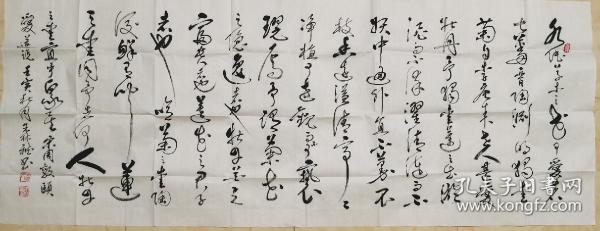 水陆草木之花可爱者
甚蕃晋陶渊明独爱
菊自李唐来世人甚爱
牡丹予独爱莲之出淤
泥而不染濯清涟而不
妖中通外直不蔓不
枝香远益清亭亭
净植可远观而不可亵
玩焉予谓菊花
之隐逸者也牡丹花之
富贵者也莲花之君子
者也噫菊之爱陶
后鲜有闻莲
之爱同予者何人牡丹
之爱宜乎众矣宋周敦颐
爱莲说壬寅秋月
孔夫子旧书网
www.kongfz.com